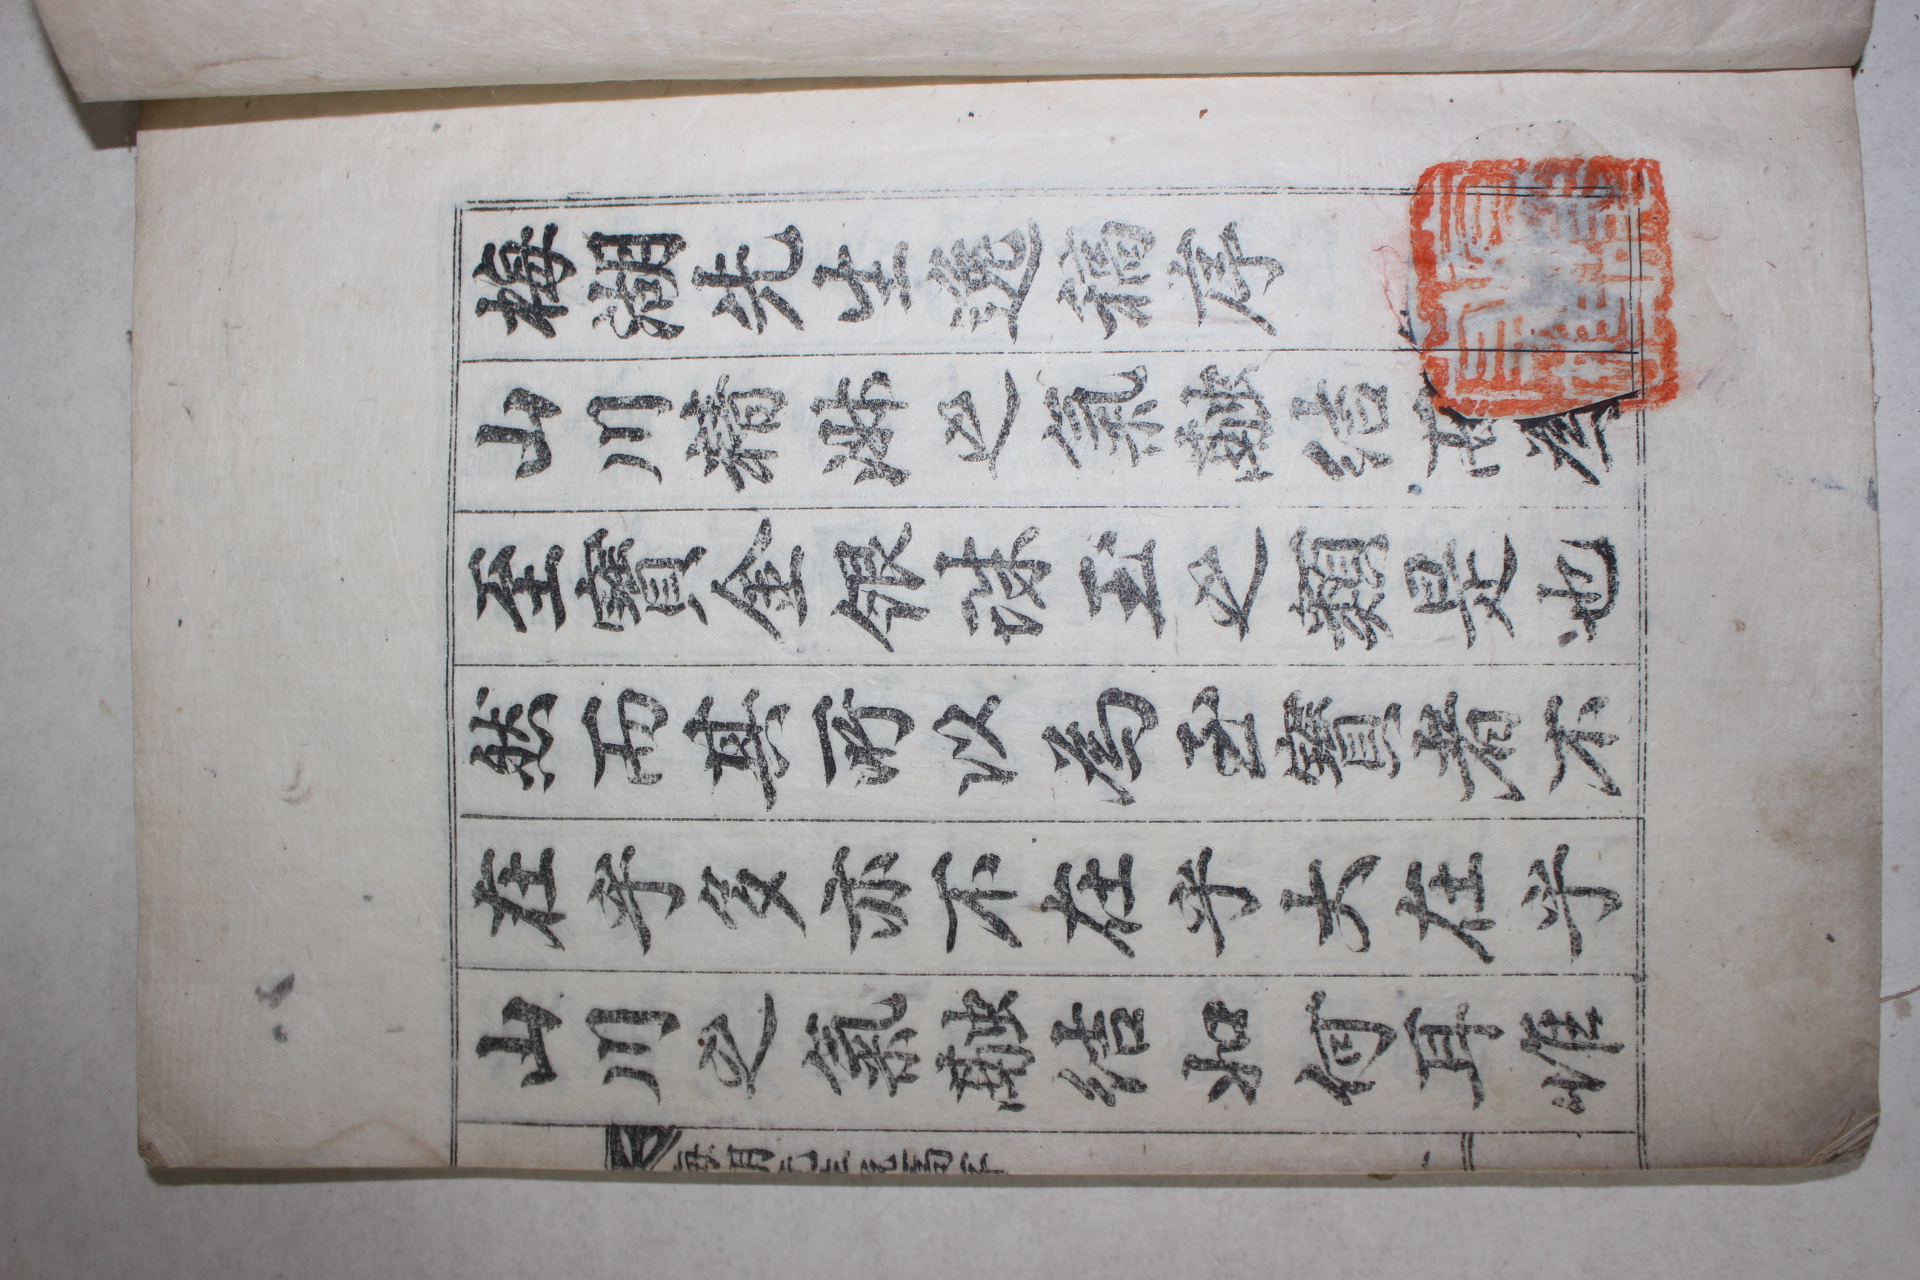 梅湖先生遺稿序
山川精淑之氣融結而爲
至寶金銀珠玉之類是也
然而其所以爲至寶者不
在乎多亦不在乎大在乎
山川之氣融結如何耳惟